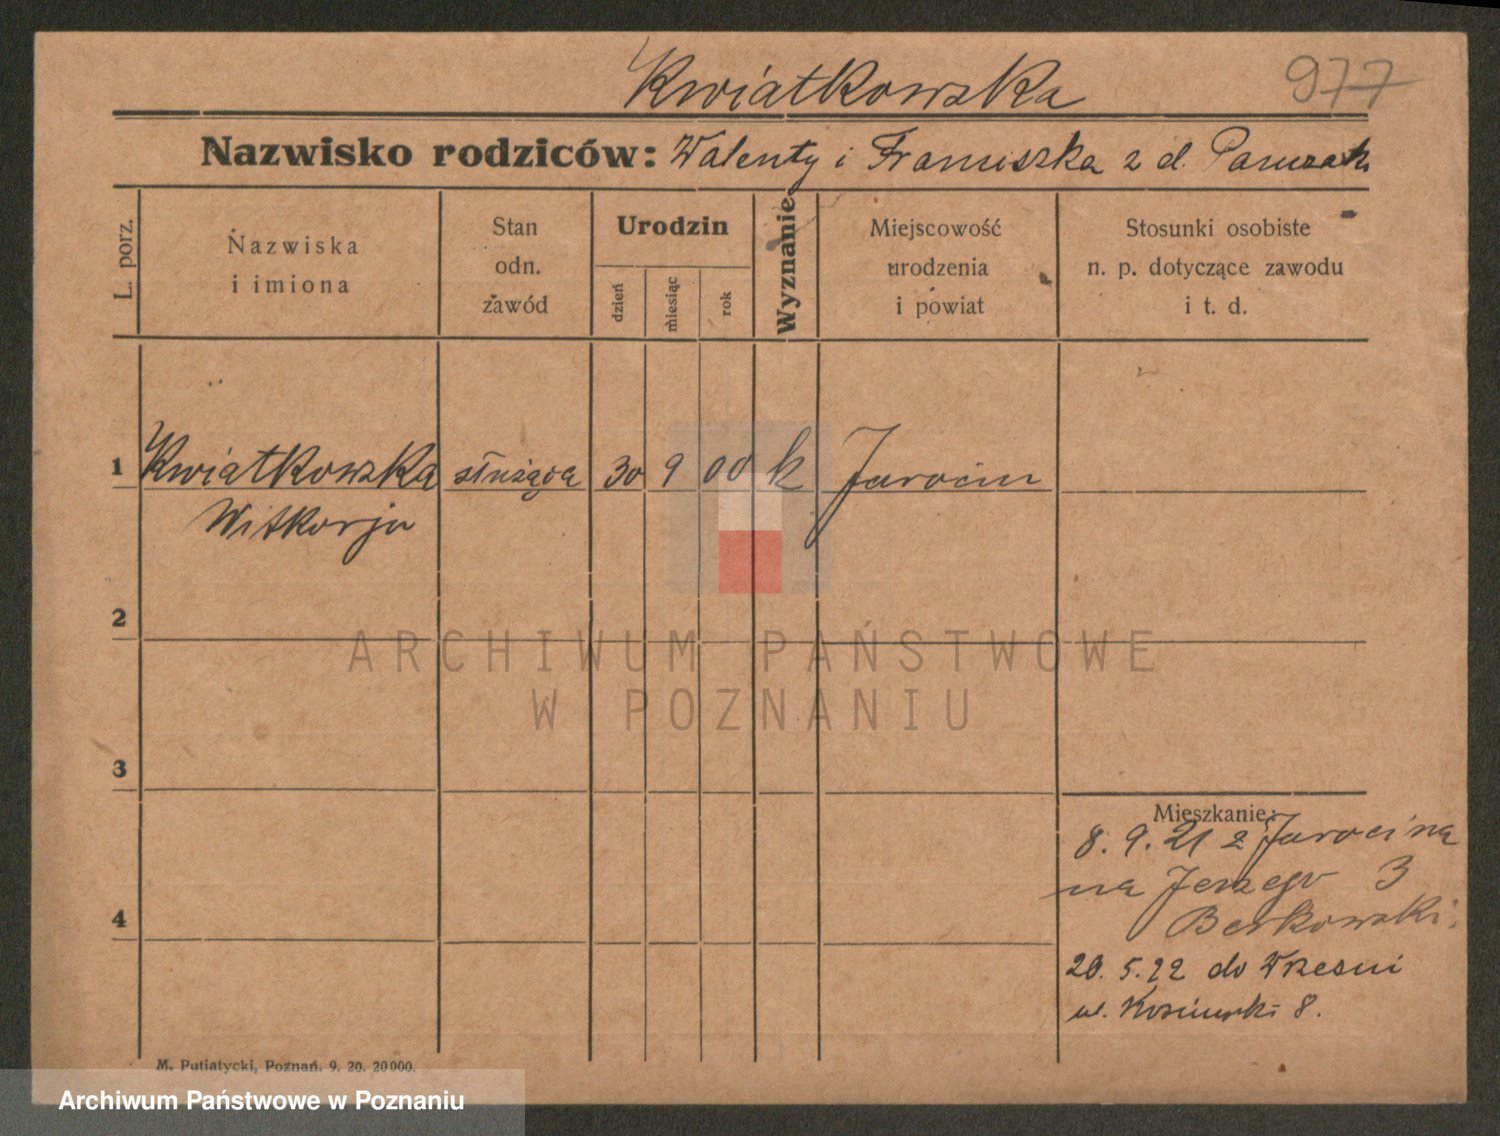 Kwiatkowska
977
Nazwisko rodziców: Walenty i Franciszka z d.
L. porz.
Nazwiska
i imiona
Stan
odn.
zawód
Urodzin
dzień
miesiąc
rok
Wyznanie
Miejscowość
urodzenia
i powiat
Stosunki osobiste
n. p. dotyczące zawodu
i t. d.
1
Kwiatkowska
służąca
30
9
00
k
Jarocin
Witkorja
2
3
4
Mieszkanie:
8. 9. 21 z Jarocina
na Jerzego 3
Berkowski.
20. 5. 22 do Wrześni
ul. 8.
M. Putiatycki, Poznań. 9. 20. 20000.
ARCHIWUM PAŃSTWOWE
W POZNANIU
Archiwum Państwowe w Poznaniu